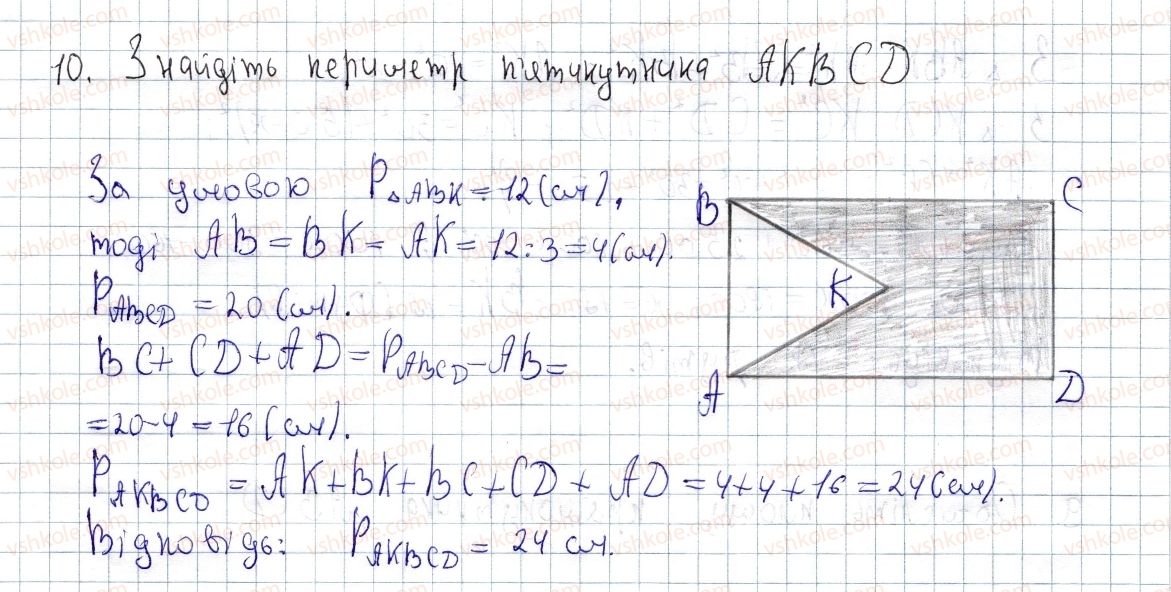 10. Знайдіть периметр п'ятикутника AKBCD
За умовою P△ABK = 12 (см),
тоді AB = BK = AK = 12 : 3 = 4 (см).
PABCD = 20 (см).
BC + CD + AD = PABCD - AB =
= 20 - 4 = 16 (см).
PAKBCD = AK + BK + BC + CD + AD = 4 + 4 + 16 = 24 (см).
Відповідь: PAKBCD = 24 см.
B C
K
A D
vshkole.com